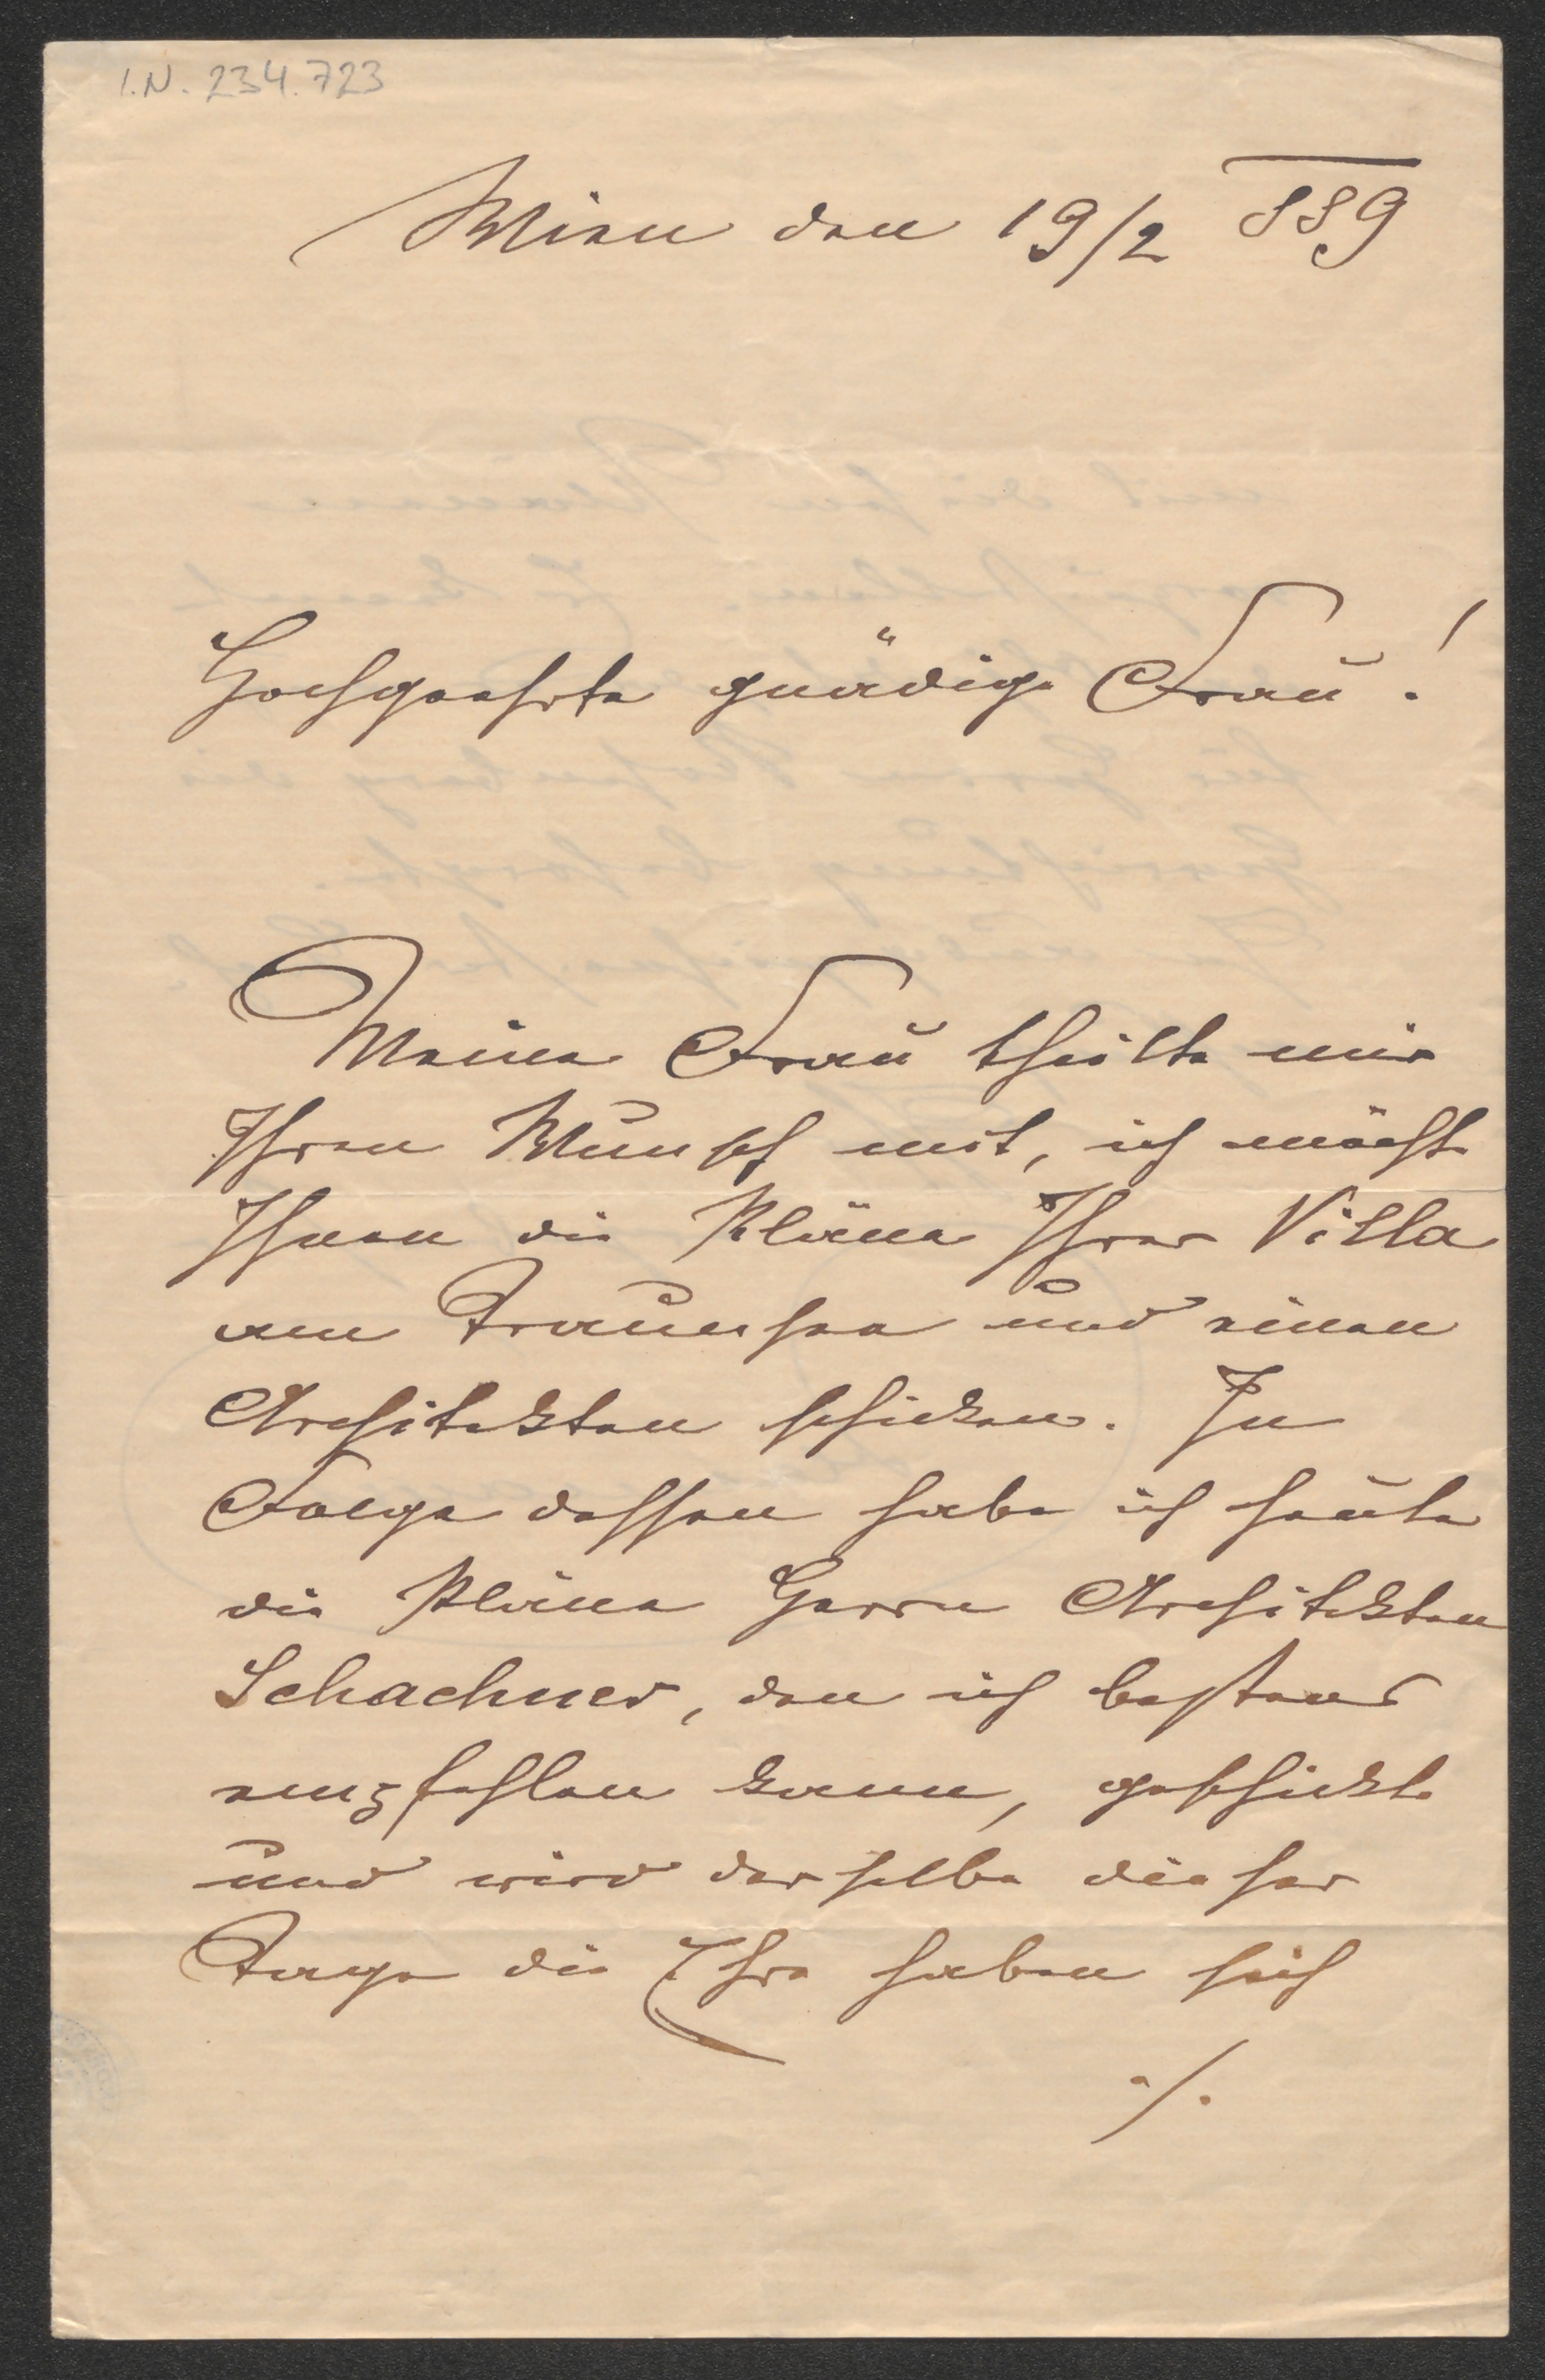 I.N. 234.723
Wien den 19/2 889
Hochgeehrte gnädige Frau!
Meine Frau theilte mir
Ihren Wunsch mit, ich möchte
Ihnen die Pläne Ihrer Villa
am Traunsee und einen
Architekten schicken. In
Folge dessen habe ich heute
die Pläne Herrn Architekten
Schachner, den ich bestens
empfehlen kann, geschickt
und wird derselbe dieser
Tage die Ehre haben sich
./.